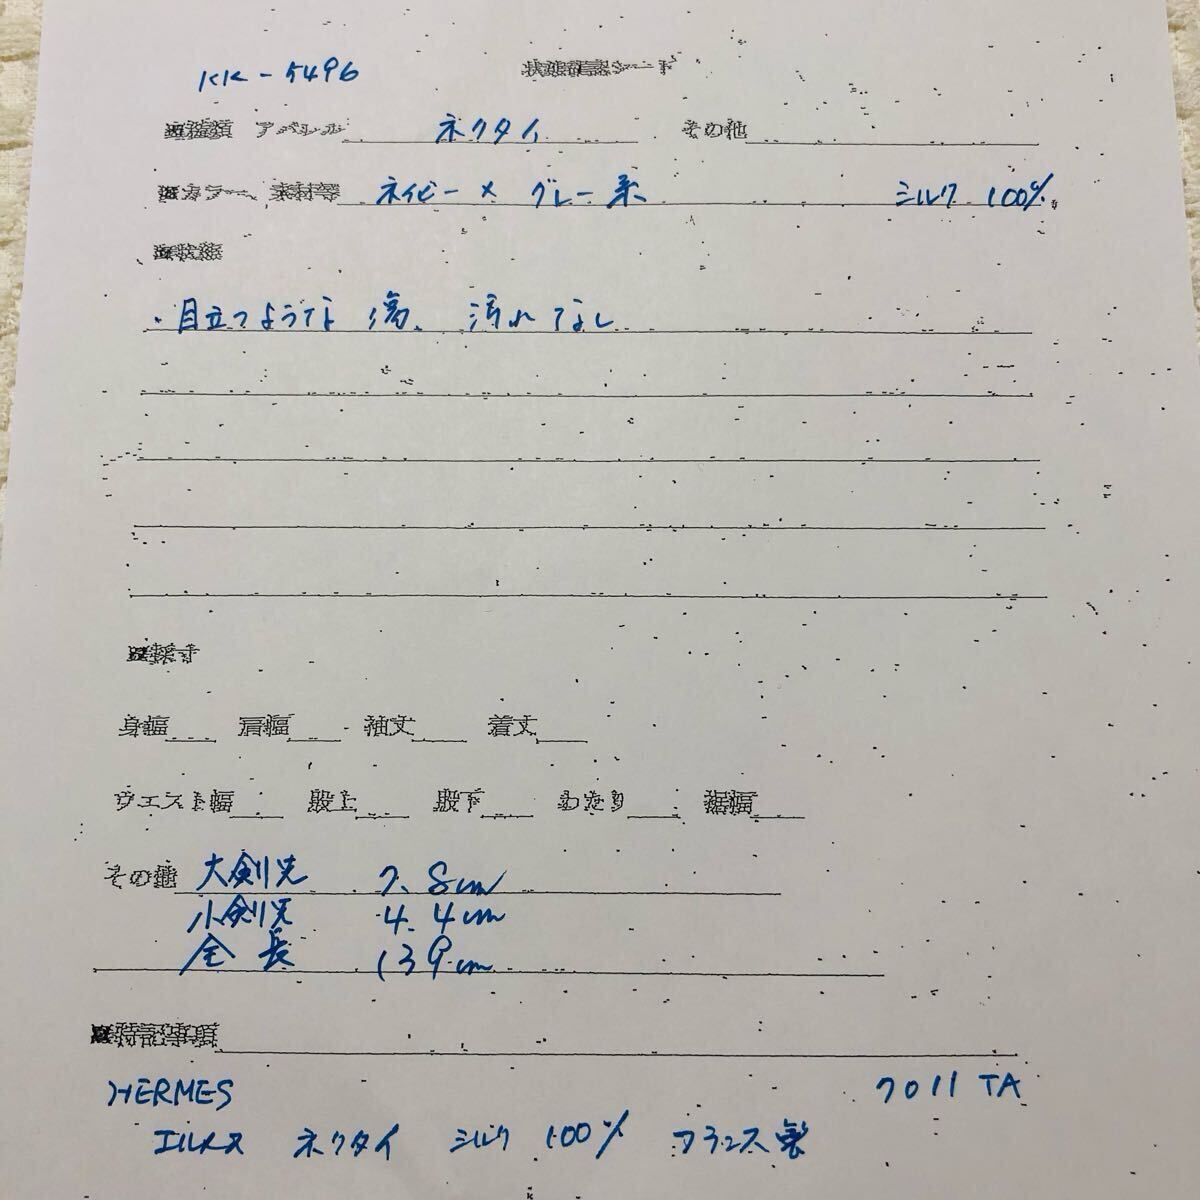 KK-5496 状態確認シート
種類 アパレル ネクタイ その他
カラー、素材等 ネイビー × グレー系 シルク 100%
状態
・目立つような 傷、汚れ なし
採寸
身幅 肩幅 袖丈 着丈
ウエスト幅 股上 股下 わたり 裾幅
その他 大剣先 7.8cm
小剣先 4.4cm
全長 139cm
特記事項
HERMES 7011 TA
エルメス ネクタイ シルク 100% フランス製